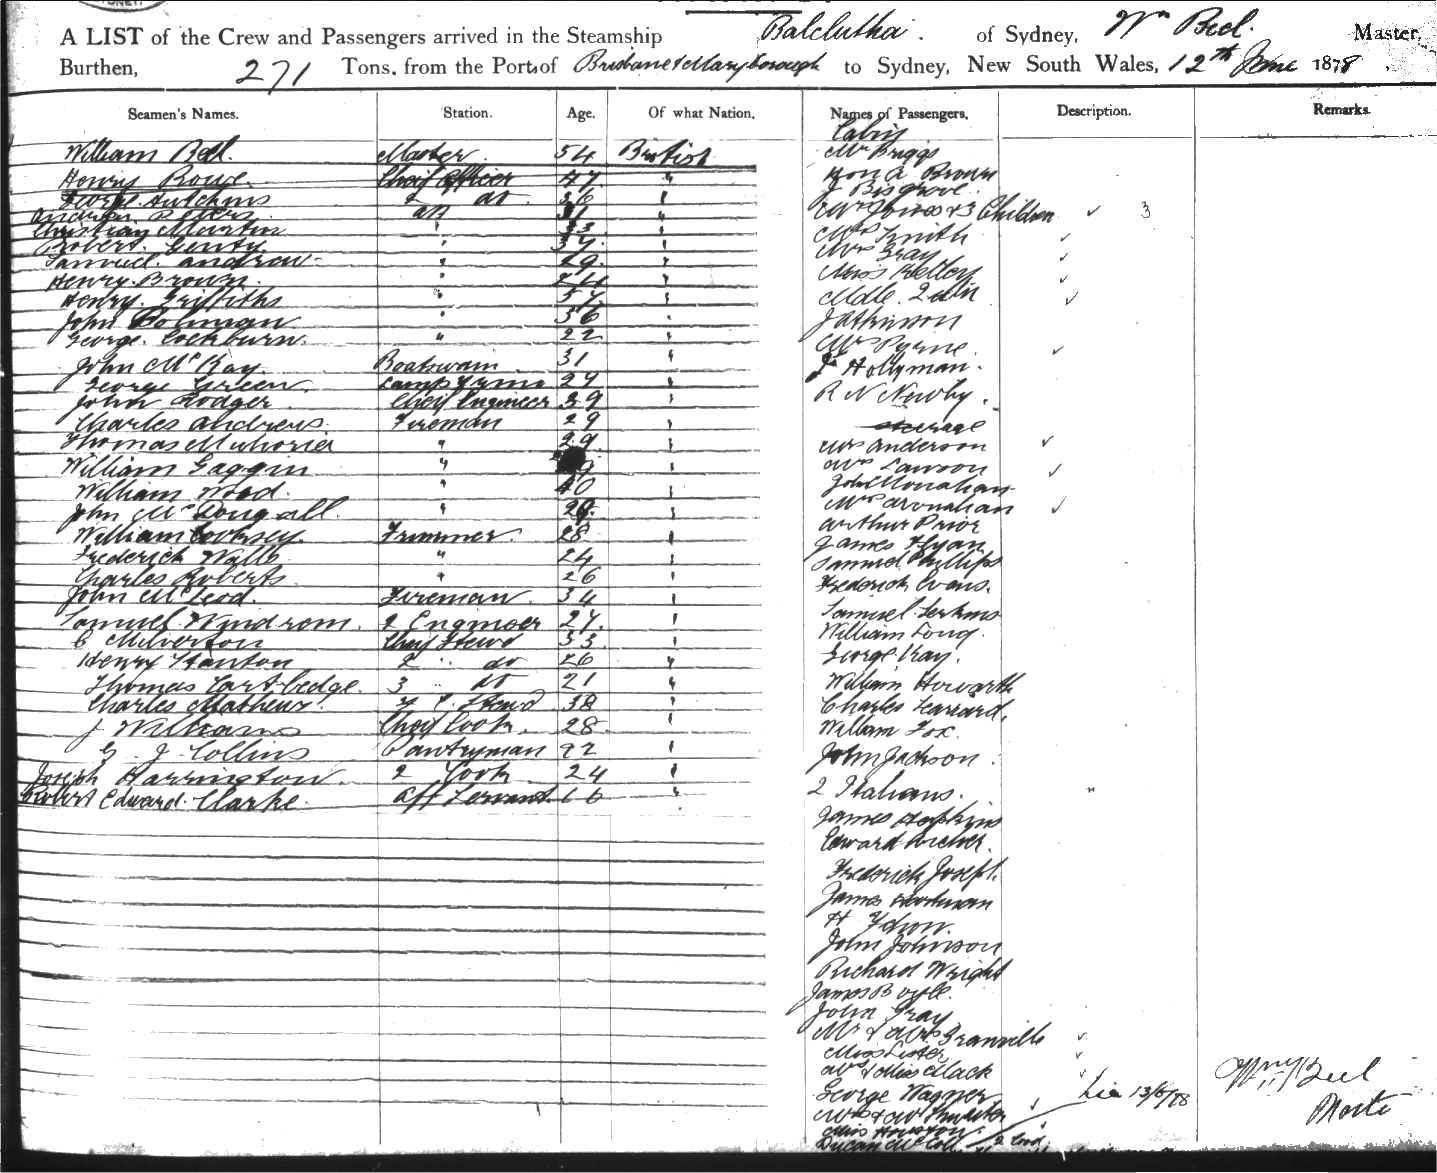 A LIST of the Crew and Passengers arrived in the Steamship Balclutha. of Sydney, Wm Beel. Master,
Burthen, 271 Tons, from the Port of Brisbane & Maryborough to Sydney, New South Wales, 12th June 1878.
Seamen's Names. Station. Age. Of what Nation. Names of Passengers. Description. Remarks.
William Beel. Master 54 British
Henry Rowe. Cheif Officer 47 "
George Hutchins 2 do 36 "
Andrew Peters AB "
Christian Martin " 33 "
Robert Genty " 37 "
Samuel Andrew " 29 "
Henry Brown " 24 "
Henry Griffiths " 57 "
John Colman " 36 "
George Cockburn " 22 "
John McKay Boatswain 31 "
George Green Lamp Trimr 27 "
John Rodger Cheif Engineer 39 "
Charles Andrews Fireman 29 "
Thomas " 29 "
William Gaggin " "
William Wood. " 40 "
John McDougall " "
William Cooksey Trimmer 28 "
Frederick Wells " 24 "
Charles Roberts " 26 "
John McLeod. Fireman 34 "
Samuel 2 Engineer 27 "
C Milverton Cheif Stewd 33 "
Henry Stanton 2 " do 26 "
Thomas Cartledge. 3 " do 21 "
Charles Mathews Stewd 38 "
J Williams Cheif Cook. 28 "
G J Collins Pantryman 22 "
Joseph Harrington 2 Cook 24 "
Robert Edward Clarke Aft Servant 16 "
Cabin
Mr Briggs
Hon A Brown
J Bisgrove
Mrs Jones & 3 Children ✓ 3
Mrs Smith ✓
Mrs Gray ✓
Miss Kelley ✓
Mdle ✓
J Atkinson
Mrs Pyrne ✓
J Hollyman.
R N Newby.
Steerage
Mrs Anderson ✓
Mrs Lawson ✓
John Monahan
Mrs Monahan ✓
Arthur Prior
James Flyan
Samuel Phillips
Frederick Evans.
Samuel Perkins
William Long.
George Kay.
William Howarth
Charles
William Fox.
John Jackson
2 Italians. "
James Hopkins
Edward Archer.
Frederick Joseph.
James
H
John Johnson
Richard Wright
James Boyle.
John Gray
Mr & Mrs Granville ✓
Miss Lister ✓
Mrs & Miss Mack ✓
George Wagner
Mrs & Mr ✓
Miss Houston
Ducan McColl
13/6/78
Wm Beel
Master